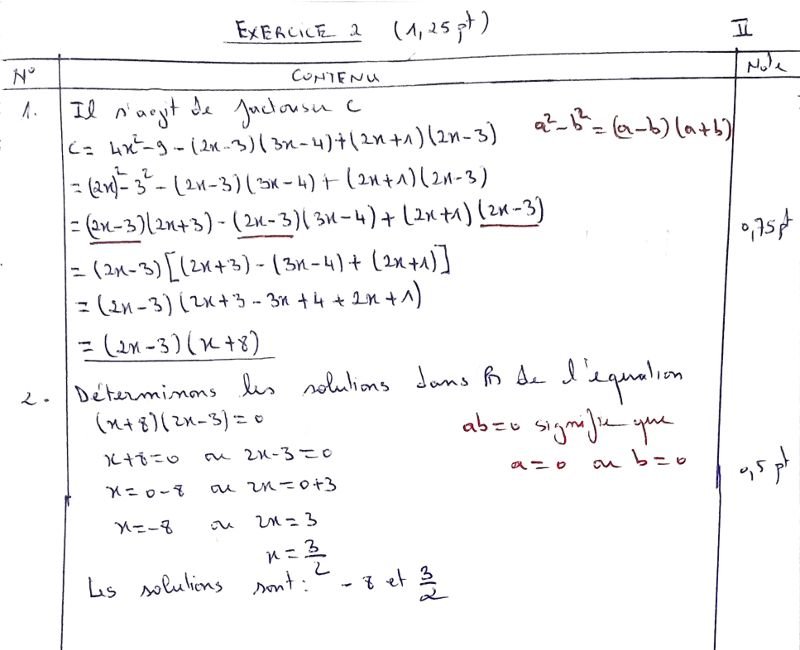 EXERCICE 2 (1,25 pt)
II
N° CONTENU Note
1. Il s'agit de factoriser C
C = 4x²-9 - (2x-3)(3x-4)+(2x+1)(2x-3) a²-b²=(a-b)(a+b)
= (2x)²-3² - (2x-3)(3x-4) + (2x+1)(2x-3)
= (2x-3)(2x+3) - (2x-3)(3x-4) + (2x+1)(2x-3) 0,75 pt
= (2x-3)[(2x+3) - (3x-4) + (2x+1)]
= (2x-3)(2x+3 - 3x + 4 + 2x + 1)
= (2x-3)(x+8)
2. Déterminons les solutions dans ℝ de l'équation
(x+8)(2x-3)=0 ab=0 signifie que
x+8=0 ou 2x-3=0 a=0 ou b=0 0,5 pt
x=0-8 ou 2x=0+3
x=-8 ou 2x=3
x=3/2
Les solutions sont : -8 et 3/2